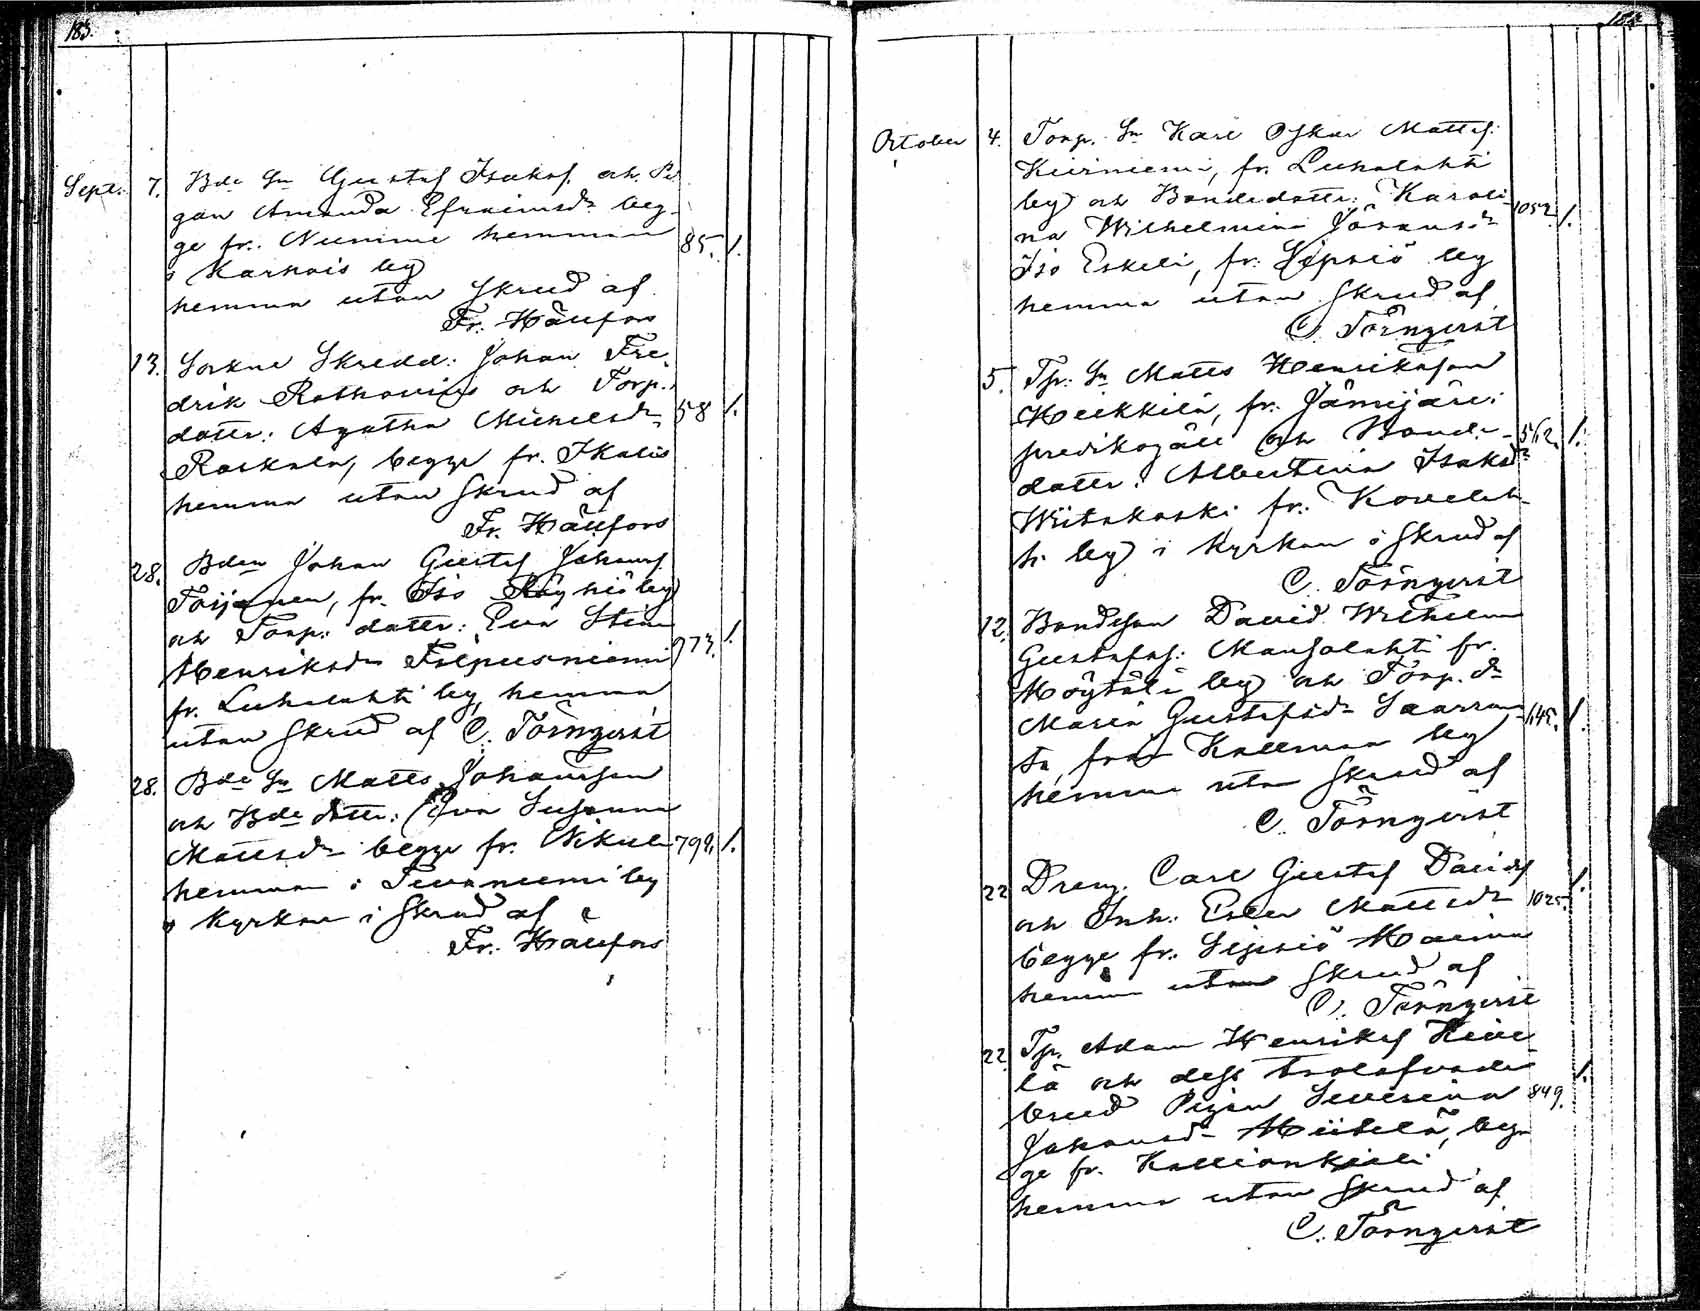 183.
Sept. 7. Bde Sn Gustaf Isaksf. och Pi
gan Amanda Efraimsdr beg-
ge fr. Niemine hemman
i Karhois by 85. /.
hemma utan Skrud af
Fr. Hällfors
13. Sockne Skredd: Johan Fre
drik Rothovius och Torp.
dottr: Agatha Michelsdr 58 /.
Raskala, begge fr. Ikalis
hemma utan Skrud af
Fr. Hällfors
28. Bden Johan Gustaf Johansf.
Toijanen, fr. Iso Röyhiö by
och Torp: dottr: Eva Stina
Henriksdr 973. /.
fr. Luhalahti by, hemma
utan Skrud af C. Törnqvist
28. Bde Sn Matts Johansson
och Bde dottr: Eva Susanna
Mattsdr begge fr. Nikula 792. /.
hemman i Tevaniemi by
i Kyrkan i Skrud af
Fr. Hällfors
October 4. Torp. Sn Karl Oskar Mattsf.
Kiirniemi, fr. Luhalahti
by och Bondedottr: Karoli-
na Wilhelmina Johansdr 1052. /.
Iso Eskeli, fr. Sipsiö by
hemma utan Skrud af
C. Törnqvist
5. Tpr: Sn Matts Henriksson
Heikkilä, fr. Jämijärvi
predikogäll och Bonde- 562. /.
dottr: Albertina Isaksdr
Wiitakoski fr. Kovelah-
ti by i Kyrkan i Skrud af
C. Törnqvist
12. Bondeson David Wilhelm
Gustafsf. Mansolahti fr.
Höytöli by och Torp. dr
Maria Gustafsdr Saarran 645. /.
ta, från Kallmaa by
hemma utan Skrud af
C. Törnqvist
22 Dreng. Carl Gustaf Davidsf /.
och Inh: Ester Mattsdr 1025.
begge fr. Sipsiö
hemma utan Skrud af
C. Törnqvist
22. Tp. Adam Henriksf
lä och dess trolofvade /.
brud Pigan Severina 849.
Johansdr Hiitelä, beg-
ge fr. Kallionkieli
hemma utan Skrud af
C. Törnqvist